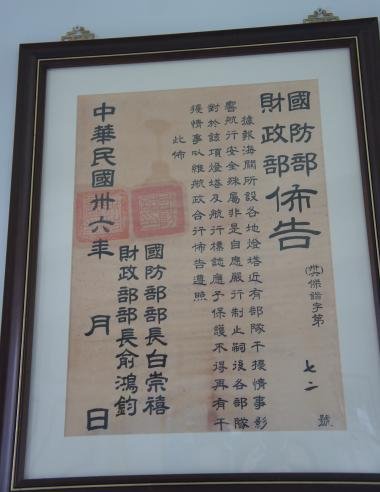 國防部
財政部
佈告
傑諧字第 七二 號
據報海關所設各地燈塔近有部隊干擾情事影
響航行安全殊屬非是自應嚴行制止嗣後各部隊
對於該項燈塔及航行標誌應予保護不得再有干
擾情事以維航政合行佈告遵照
此佈
國防部部長白崇禧
財政部部長俞鴻鈞
中華民國卅六年 月 日